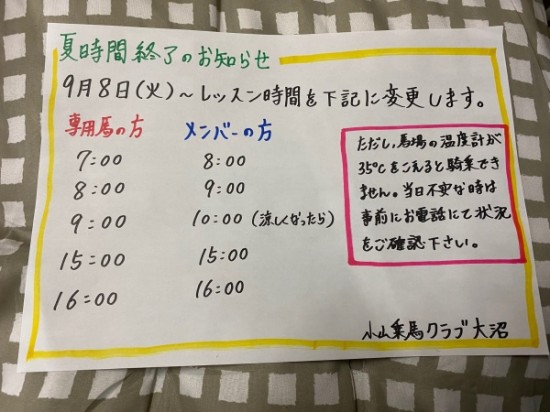 夏時間終了のお知らせ
9月8日(火)～レッスン時間を下記に変更します。
専用馬の方 メンバーの方
7:00 8:00
8:00 9:00
9:00 10:00(涼しくなったら)
15:00 15:00
16:00 16:00
ただし、馬場の温度計が
35℃をこえると騎乗でき
ません。当日不安な時は
事前にお電話にて状況
をご確認下さい。
小山乗馬クラブ大沼